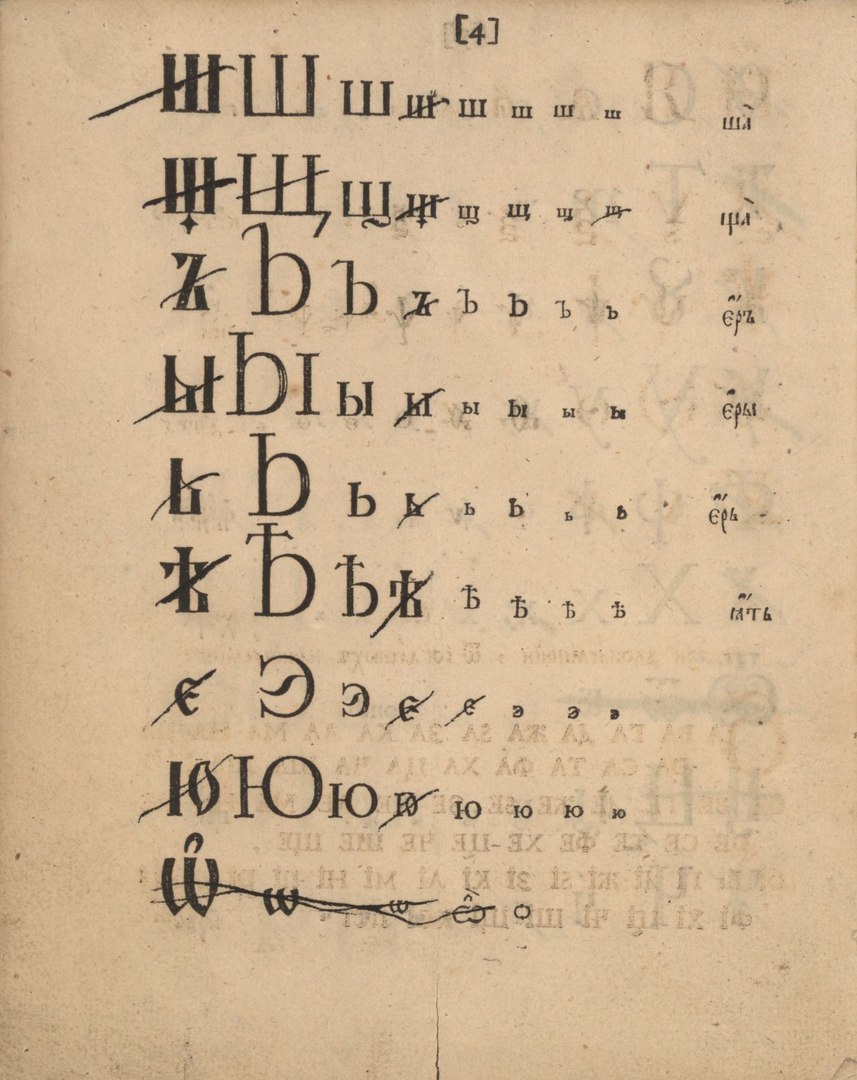 [4]
Ш Ш Ш Ш ш ш ш ш ша̀
Щ Щ Щ Щ щ щ щ щ ща̀
Ъ Ъ Ъ ъ ъ ъ ъ ъ є҆́ръ
Ы Ы Ы ы ы ы ы ы є҆ры̀
Ь Ь Ь ь ь ь ь ь є҆́рь
Ѣ Ѣ Ѣ Ѣ ѣ ѣ ѣ ѣ ꙗ҆́ть
Є Э Э Є є э э э
Ю Ю Ю Ю ю ю ю ю
Ѽ ѡ ѡ ѽ о